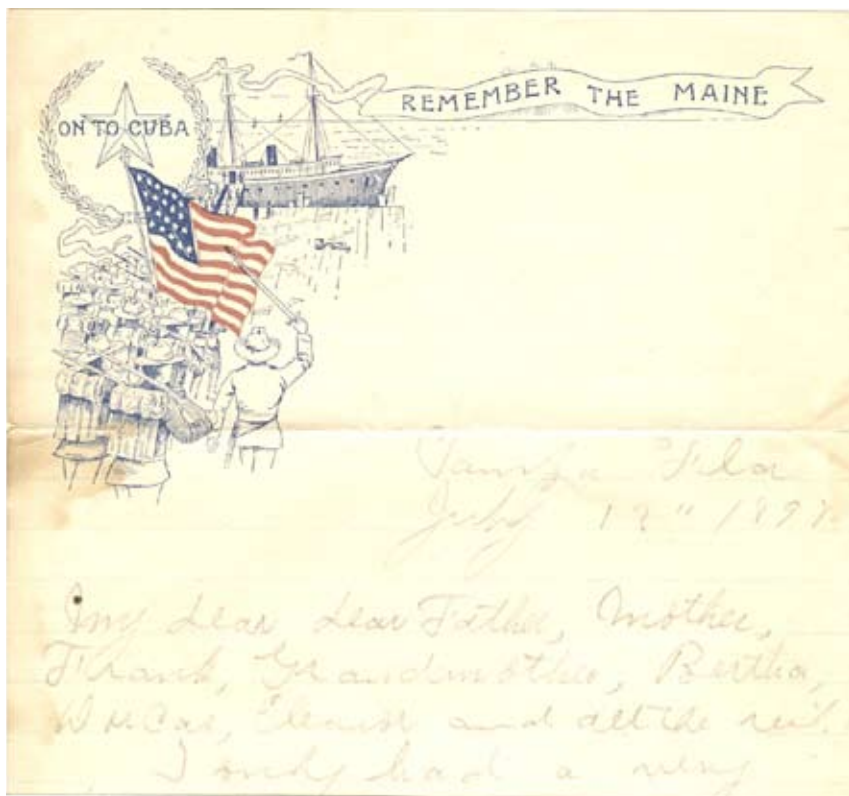 REMEMBER THE MAINE
ON TO CUBA
Tampa Fla
July 12" 1898
My dear dear Father, Mother,
Frank, Grandmother, Bertha,
and all the rest.
I only had a very